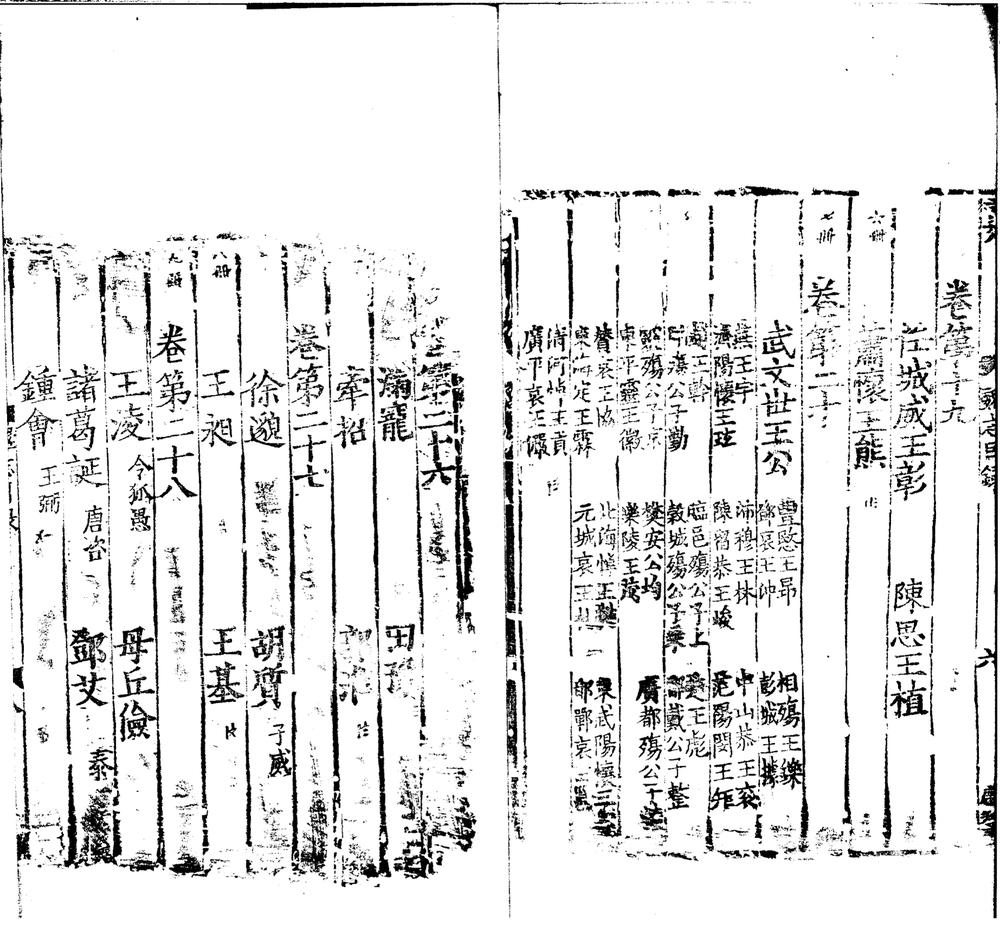 卷第十九
任城威王彰 陳思王植
蕭懷王熊
六冊
卷第二十
七冊
武文世王公
豐愍王昂 相殤王鑠
鄧哀王沖 彭城王據
燕王宇 沛穆王林 中山恭王袞
濟陽懷王玹 陳留恭王峻 范陽閔王矩
趙王幹 臨邑殤公子上 楚王彪
剛殤公子勤 穀城殤公子乘 郿戴公子整
靈殤公子京 樊安公均 廣都殤公子棘
東平靈王徽 樂陵王茂
贊哀王協 北海悼王蕤 東武陽懷王
東海定王霖 元城哀王 邯鄲哀
清河悼王貢
廣平哀王儼
卷第二十六
滿寵 田豫
牽招 郭淮
卷第二十七
徐邈 胡質 子威
王昶 王基
八冊
卷第二十八
九冊
王凌 令狐愚 毋丘儉
諸葛誕 唐咨 鄧艾 泰
鍾會 王弼